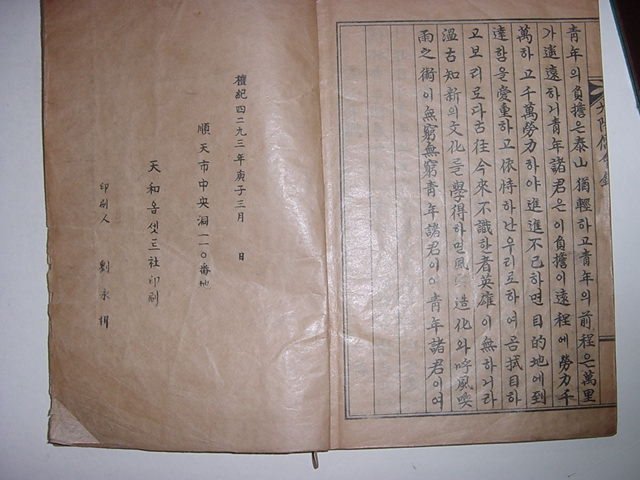 青年의負擔은泰山 猶輕하고青年의前程은萬里
가遠遠하거青年諸君은이負擔이遠程에勞力千
萬하고千萬勞力하야進進不已하면目的地에到
達함을愛重하고依恃하난우리로하여곰拭目하
고보리로다古往今來不識하者英雄이無하거라
溫古知新의文化를學得하면風 造化와呼風喚
雨之術이無窮無窮青年諸君이여青年諸君이여
檀紀四二九三年庚子三月 日
順天市中央洞一一０番地
天和옵셋트社印刷
印刷人 劉永